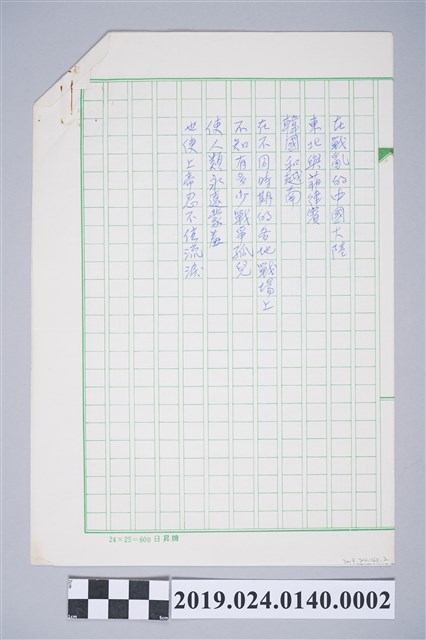 在戰亂的中國大陸
東北與菲律賓
韓國和越南
在不同時期的各地戰場上
不知有多少戰爭孤兒
使人類永遠蒙羞
也使上帝忍不住流淚
24×25=600 日昇牌
2019.024.0140.0002